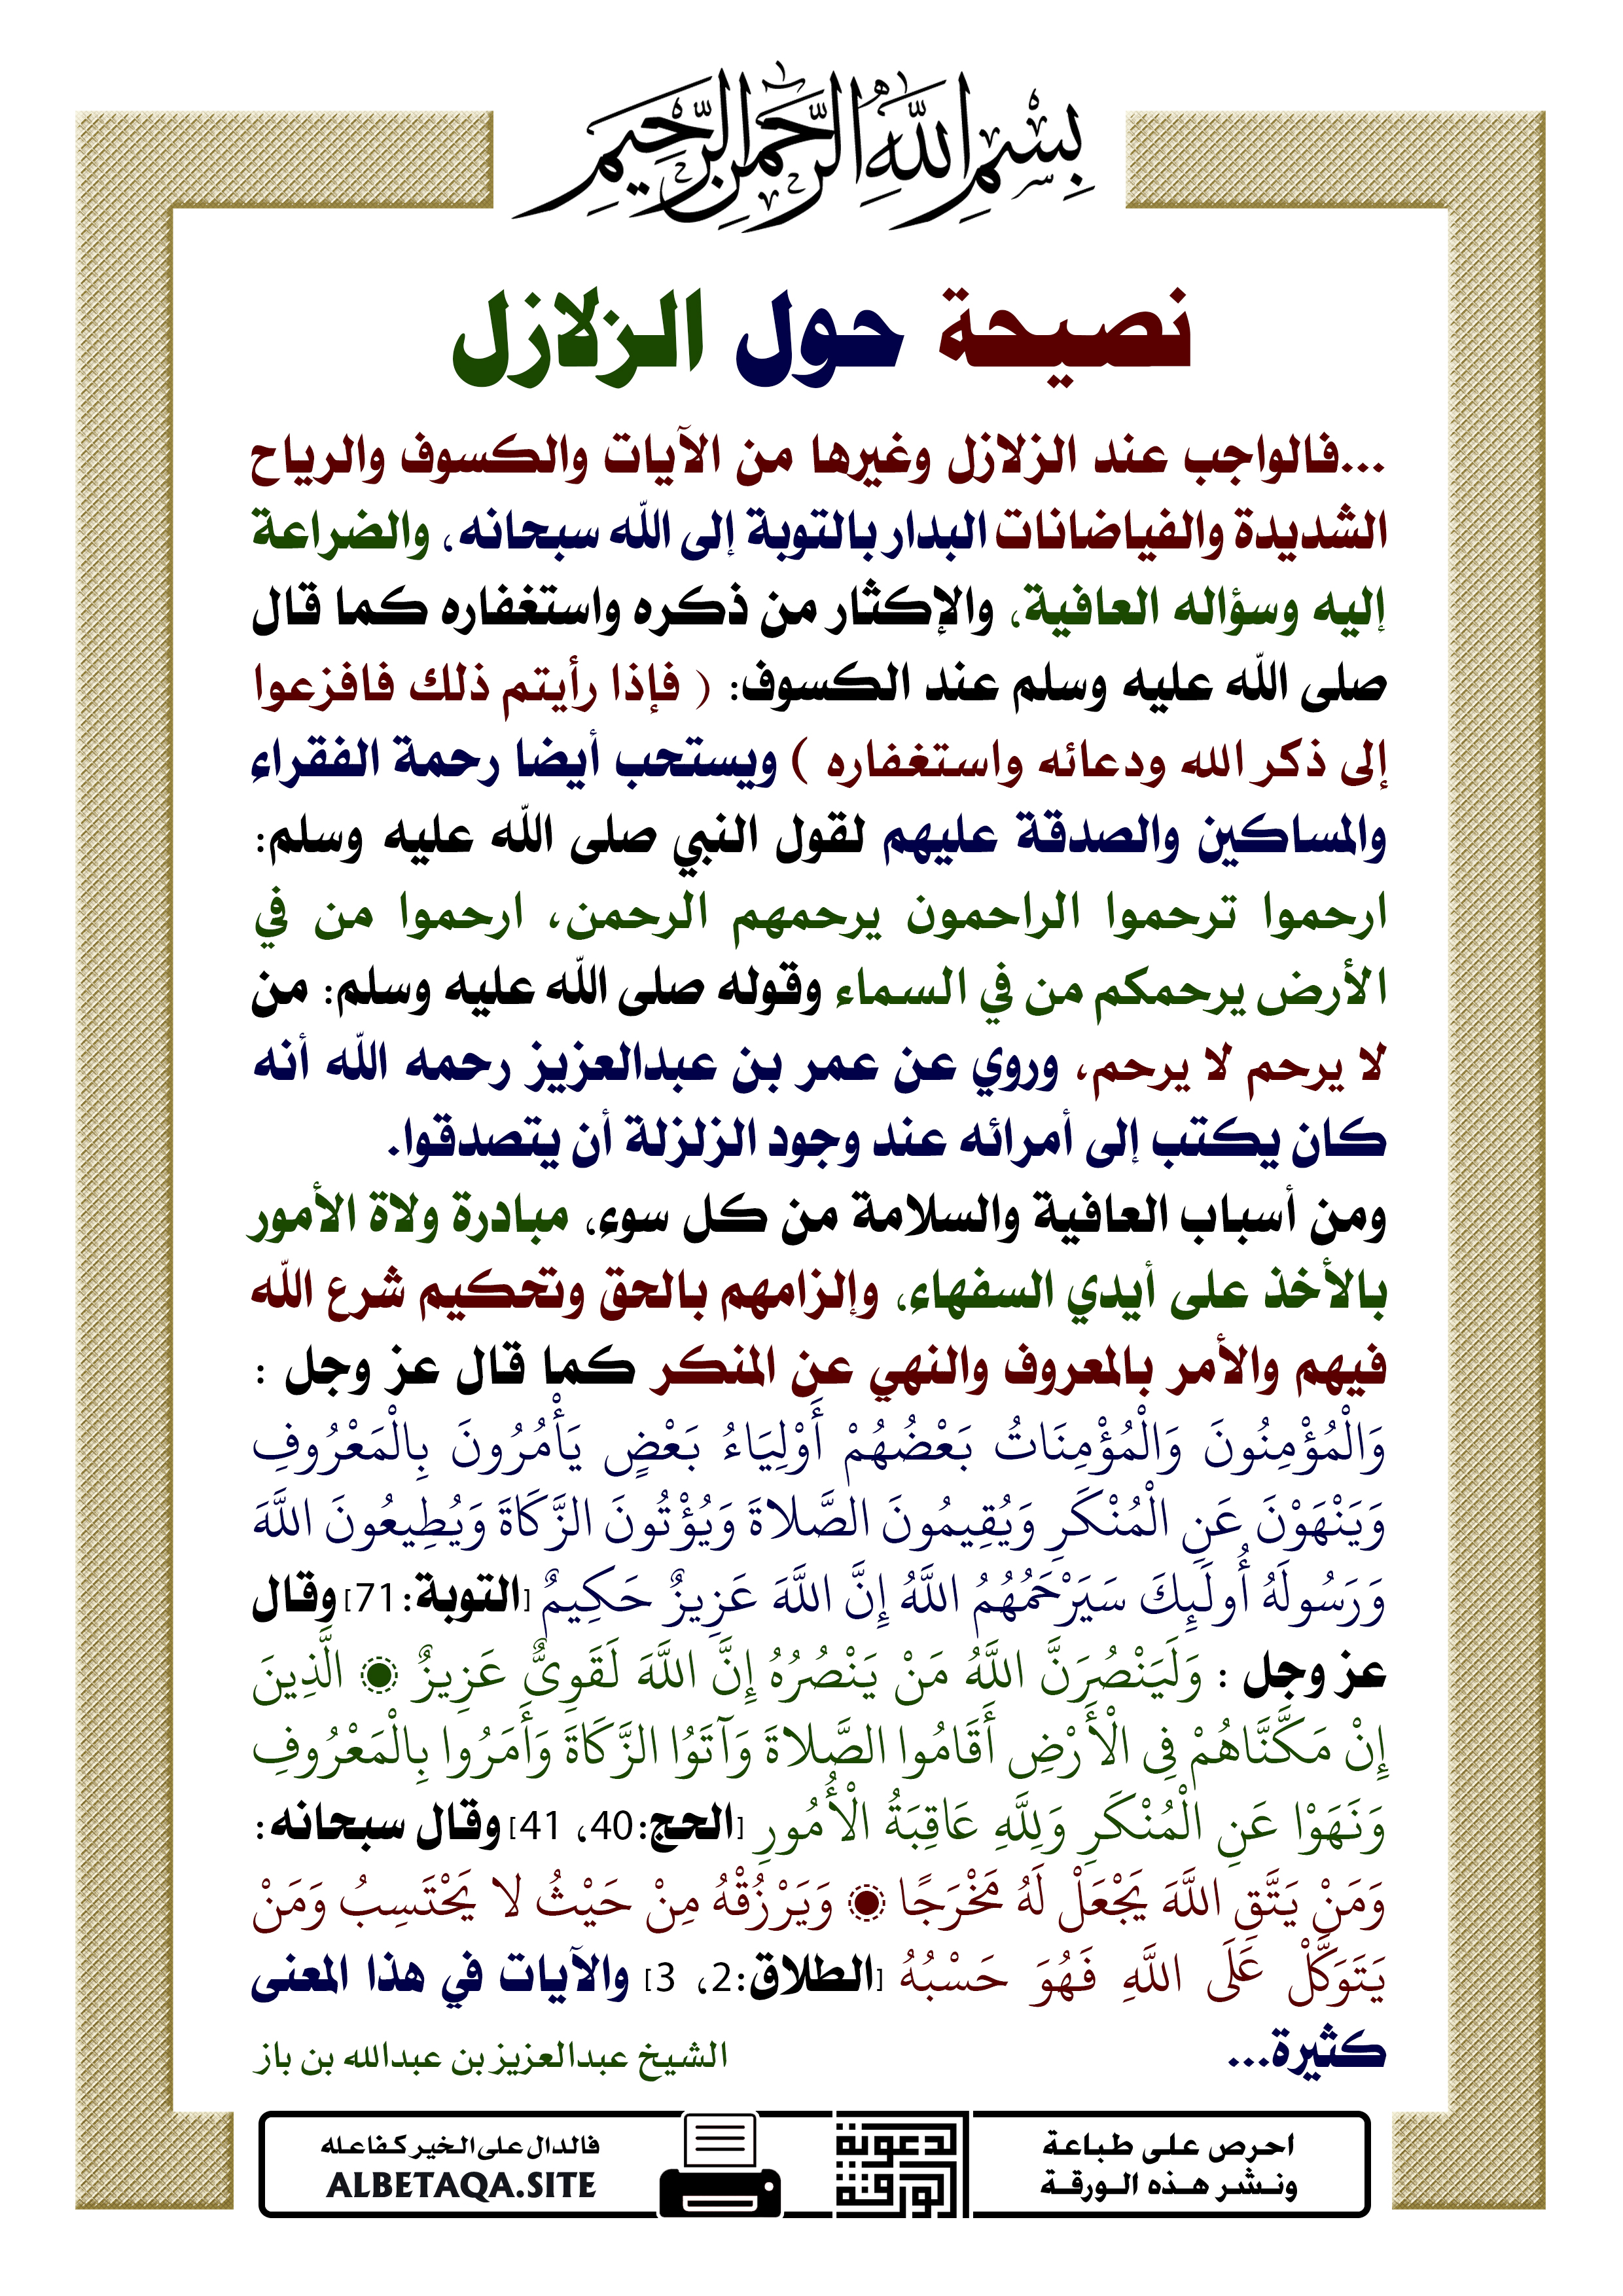 بِسْمِ اللَّهِ الرَّحْمَنِ الرَّحِيمِ
نصيحة حول الزلازل
...فالواجب عند الزلازل وغيرها من الآيات والكسوف والرياح
الشديدة والفياضانات البدار بالتوبة إلى الله سبحانه، والضراعة
إليه وسؤاله العافية، والإكثار من ذكره واستغفاره كما قال
صلى الله عليه وسلم عند الكسوف: ( فإذا رأيتم ذلك فافزعوا
إلى ذكر الله ودعائه واستغفاره ) ويستحب أيضا رحمة الفقراء
والمساكين والصدقة عليهم لقول النبي صلى الله عليه وسلم:
ارحموا ترحموا الراحمون يرحمهم الرحمن، ارحموا من في
الأرض يرحمكم من في السماء وقوله صلى الله عليه وسلم: من
لا يرحم لا يرحم، وروي عن عمر بن عبدالعزيز رحمه الله أنه
كان يكتب إلى أمرائه عند وجود الزلزلة أن يتصدقوا.
ومن أسباب العافية والسلامة من كل سوء، مبادرة ولاة الأمور
بالأخذ على أيدي السفهاء، وإلزامهم بالحق وتحكيم شرع الله
فيهم والأمر بالمعروف والنهي عن المنكر كما قال عز وجل :
وَالْمُؤْمِنُونَ وَالْمُؤْمِنَاتُ بَعْضُهُمْ أَوْلِيَاءُ بَعْضٍ يَأْمُرُونَ بِالْمَعْرُوفِ
وَيَنْهَوْنَ عَنِ الْمُنْكَرِ وَيُقِيمُونَ الصَّلاةَ وَيُؤْتُونَ الزَّكَاةَ وَيُطِيعُونَ اللَّهَ
وَرَسُولَهُ أُولَئِكَ سَيَرْحَمُهُمُ اللَّهُ إِنَّ اللَّهَ عَزِيزٌ حَكِيمٌ [التوبة:71] وقال
عز وجل : وَلَيَنْصُرَنَّ اللَّهُ مَنْ يَنْصُرُهُ إِنَّ اللَّهَ لَقَوِيٌّ عَزِيزٌ ۝ الَّذِينَ
إِنْ مَكَّنَّاهُمْ فِي الْأَرْضِ أَقَامُوا الصَّلاةَ وَآتَوُا الزَّكَاةَ وَأَمَرُوا بِالْمَعْرُوفِ
وَنَهَوْا عَنِ الْمُنْكَرِ وَلِلَّهِ عَاقِبَةُ الْأُمُورِ [الحج:40، 41] وقال سبحانه:
وَمَنْ يَتَّقِ اللَّهَ يَجْعَلْ لَهُ مَخْرَجًا ۝ وَيَرْزُقْهُ مِنْ حَيْثُ لا يَحْتَسِبُ وَمَنْ
يَتَوَكَّلْ عَلَى اللَّهِ فَهُوَ حَسْبُهُ [الطلاق:2، 3] والآيات في هذا المعنى
كثيرة...
الشيخ عبدالعزيز بن عبدالله بن باز
احرص على طباعة
ونشر هذه الورقة
الورقة
الدعوية
فالدال على الخير كفاعله
ALBETAQA.SITE